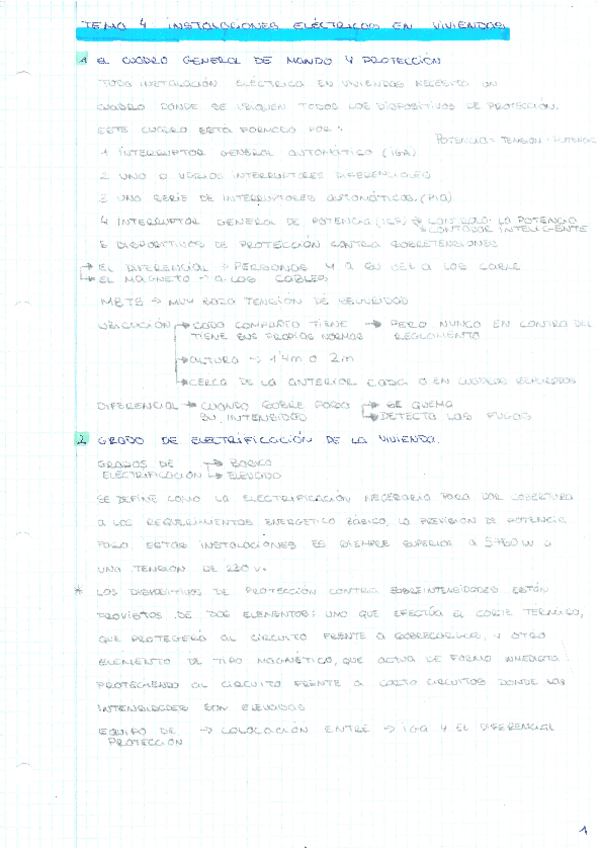 TEMA 4 INSTALACIONES ELÉCTRICAS EN VIVIENDAS
1 EL CUADRO GENERAL DE MANDO Y PROTECCIÓN
TODA INSTALACIÓN ELÉCTRICA EN VIVIENDAS NECESITA UN
CUADRO DONDE SE UBIQUEN TODOS LOS DISPOSITIVOS DE PROTECCIÓN.
ESTE CUADRO ESTÁ FORMADO POR:
POTENCIA = TENSION ·
1 INTERRUPTOR GENERAL AUTOMÁTICO (IGA)
2 UNO O VARIOS INTERRUPTORES DIFERENCIALES
3 UNA SERIE DE INTERRUPTORES AUTOMÁTICOS. (PIA)
4 INTERRUPTOR GENERAL DE POTENCIA → CONTROLA LA POTENCIA
→ CONTADOR INTELIGENTE
5 DISPOSITIVOS DE PROTECCIÓN CONTRA SOBRETENSIONES
→ EL DIFERENCIAL → PERSONAS Y A SU VEZ A LOS CABLE
→ EL MAGNETO → A LOS CABLES
MBTS → MUY BAJA TENSIÓN DE SEGURIDAD
UBICACIÓN → CADA COMPAÑÍA TIENE → PERO NUNCA EN CONTRA DEL
TIENE SUS PROPIAS NORMAS REGLAMENTO
→ ALTURA → 1'4m o 2m
→ CERCA DE LA ANTERIOR CAJA O EN CUADROS
DIFERENCIAL → CUANDO SOBRE PASA → SE QUEMA
SU INTENSIDAD → DETECTA LAS FUGAS
2 GRADO DE ELECTRIFICACIÓN DE LA VIVIENDA.
GRADOS DE → BÁSICO
ELECTRIFICACIÓN → ELEVADO
SE DEFINE COMO LA ELECTRIFICACIÓN NECESARIA PARA DAR COBERTURA
A LOS REQUERIMIENTOS ENERGETICO BÁSICO, LA PREVISION DE POTENCIA
PARA ESTAS INSTALACIONES ES SIEMPRE SUPERIOR A 5750 W A
UNA TENSION DE 230 V.
* LOS DISPOSITIVOS DE PROTECCIÓN CONTRA SOBREINTENSIDADES ESTÁN
PROVISTOS DE DOS ELEMENTOS: UNO QUE EFECTÚA EL CORTE TERMICO,
QUE PROTEGERÁ AL CIRCUITO FRENTE A SOBRECARGAS, Y OTRO
ELEMENTO DE TIPO MAGNÉTICO, QUE ACTUA DE FORMA INMEDIATA
PROTEGIENDO AL CIRCUITO FRENTE A CORTO CIRCUITOS DONDE LAS
INTENSIDADES SON ELEVADAS
EQUIPO DE → COLOCACIÓN ENTRE → IGA Y EL DIFERENCIAL
PROTECCIÓN
1